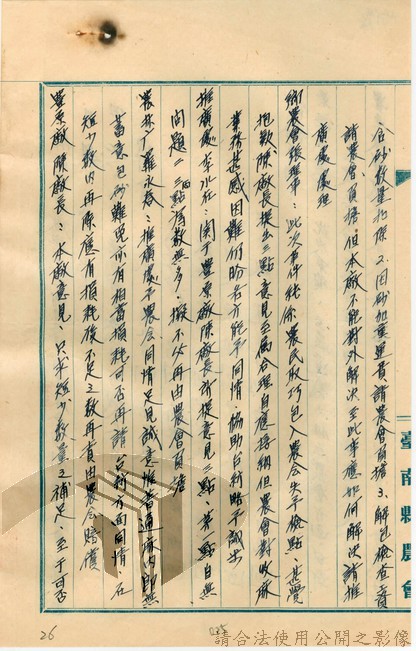 含砂數量扣除2.因砂加重運費請農會負擔3.解包檢查費
請農會負擔.但本廠不能對外解決至此事應如何解決請推
廣處處理
鄉農會張理事:此次事件純係農民取巧包入農会失于檢點.甚覺
抱歉.陳廠長提出三點意見至屬合理自應接納但農會對收麻
業務甚感困難仍盼各方能予同情.協助
推廣處李水在:関于豐原廠陳廠長所提意見三點:第一點自無
問題二三兩點為數無多.擬不必再由農會負擔
農林廳羅永春:推廣處予農会同情足見誠意推普通麻内即無
蓄意包砂難免亦有相當損耗可否再請台紡方面同情.在
短少數内再原應有損耗後不足之數再責由農会賠償
豐原廠陳廠長:本廠意見.只求短少數量之補足.至于可否
臺南縣農會
26
025
請合法使用公開之影像